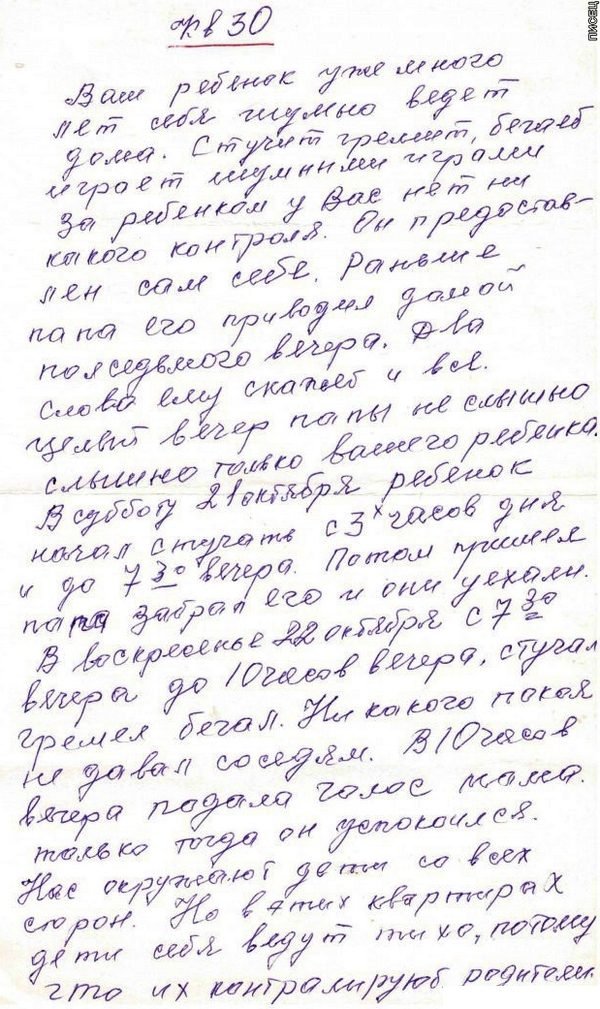 ПИСЕЦ
Кв 30
Ваш ребенок уже много
лет себя шумно ведет
дома. Стучит гремит, бегаеб
играет шумными играми
За ребенком у Вас нет ни
какого контроля. Он предостав-
лен сам себе. Раньше
папа его приводил домой
полседьмого вечера. Два
слова ему скажеб и все.
Целый вечер папы не слышно
слышно только вашего ребенка.
В субботу 21 октября ребенок
начал стучать с 3х часов дня
и до 7 30 вечера. Потом пришел
папа забрал его и они уехали.
В воскресенье 22 октября с 7 30
вечера до 10 часов вечера, стучал
гремел бегал. Ни какого покоя
не давал соседям. В 10 часов
вечера падала голос мама.
только тогда он успокоился.
Нас окружают дети со всех
сторон. Но в этих квартирах
дети себя ведут тихо, потому
что их контралируюб родители